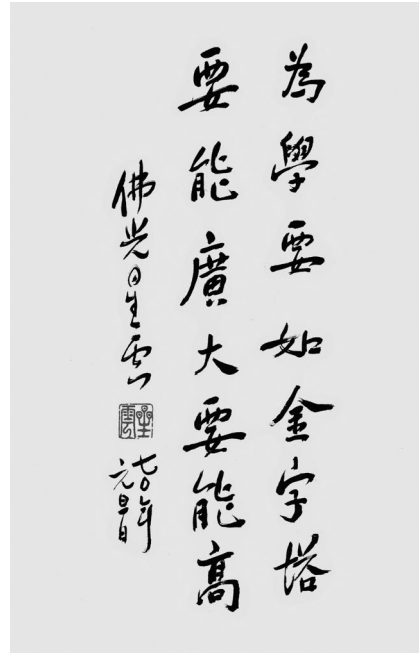 為學要如金字塔
要能廣大要能高
佛光星雲
星雲
七○年
元旦